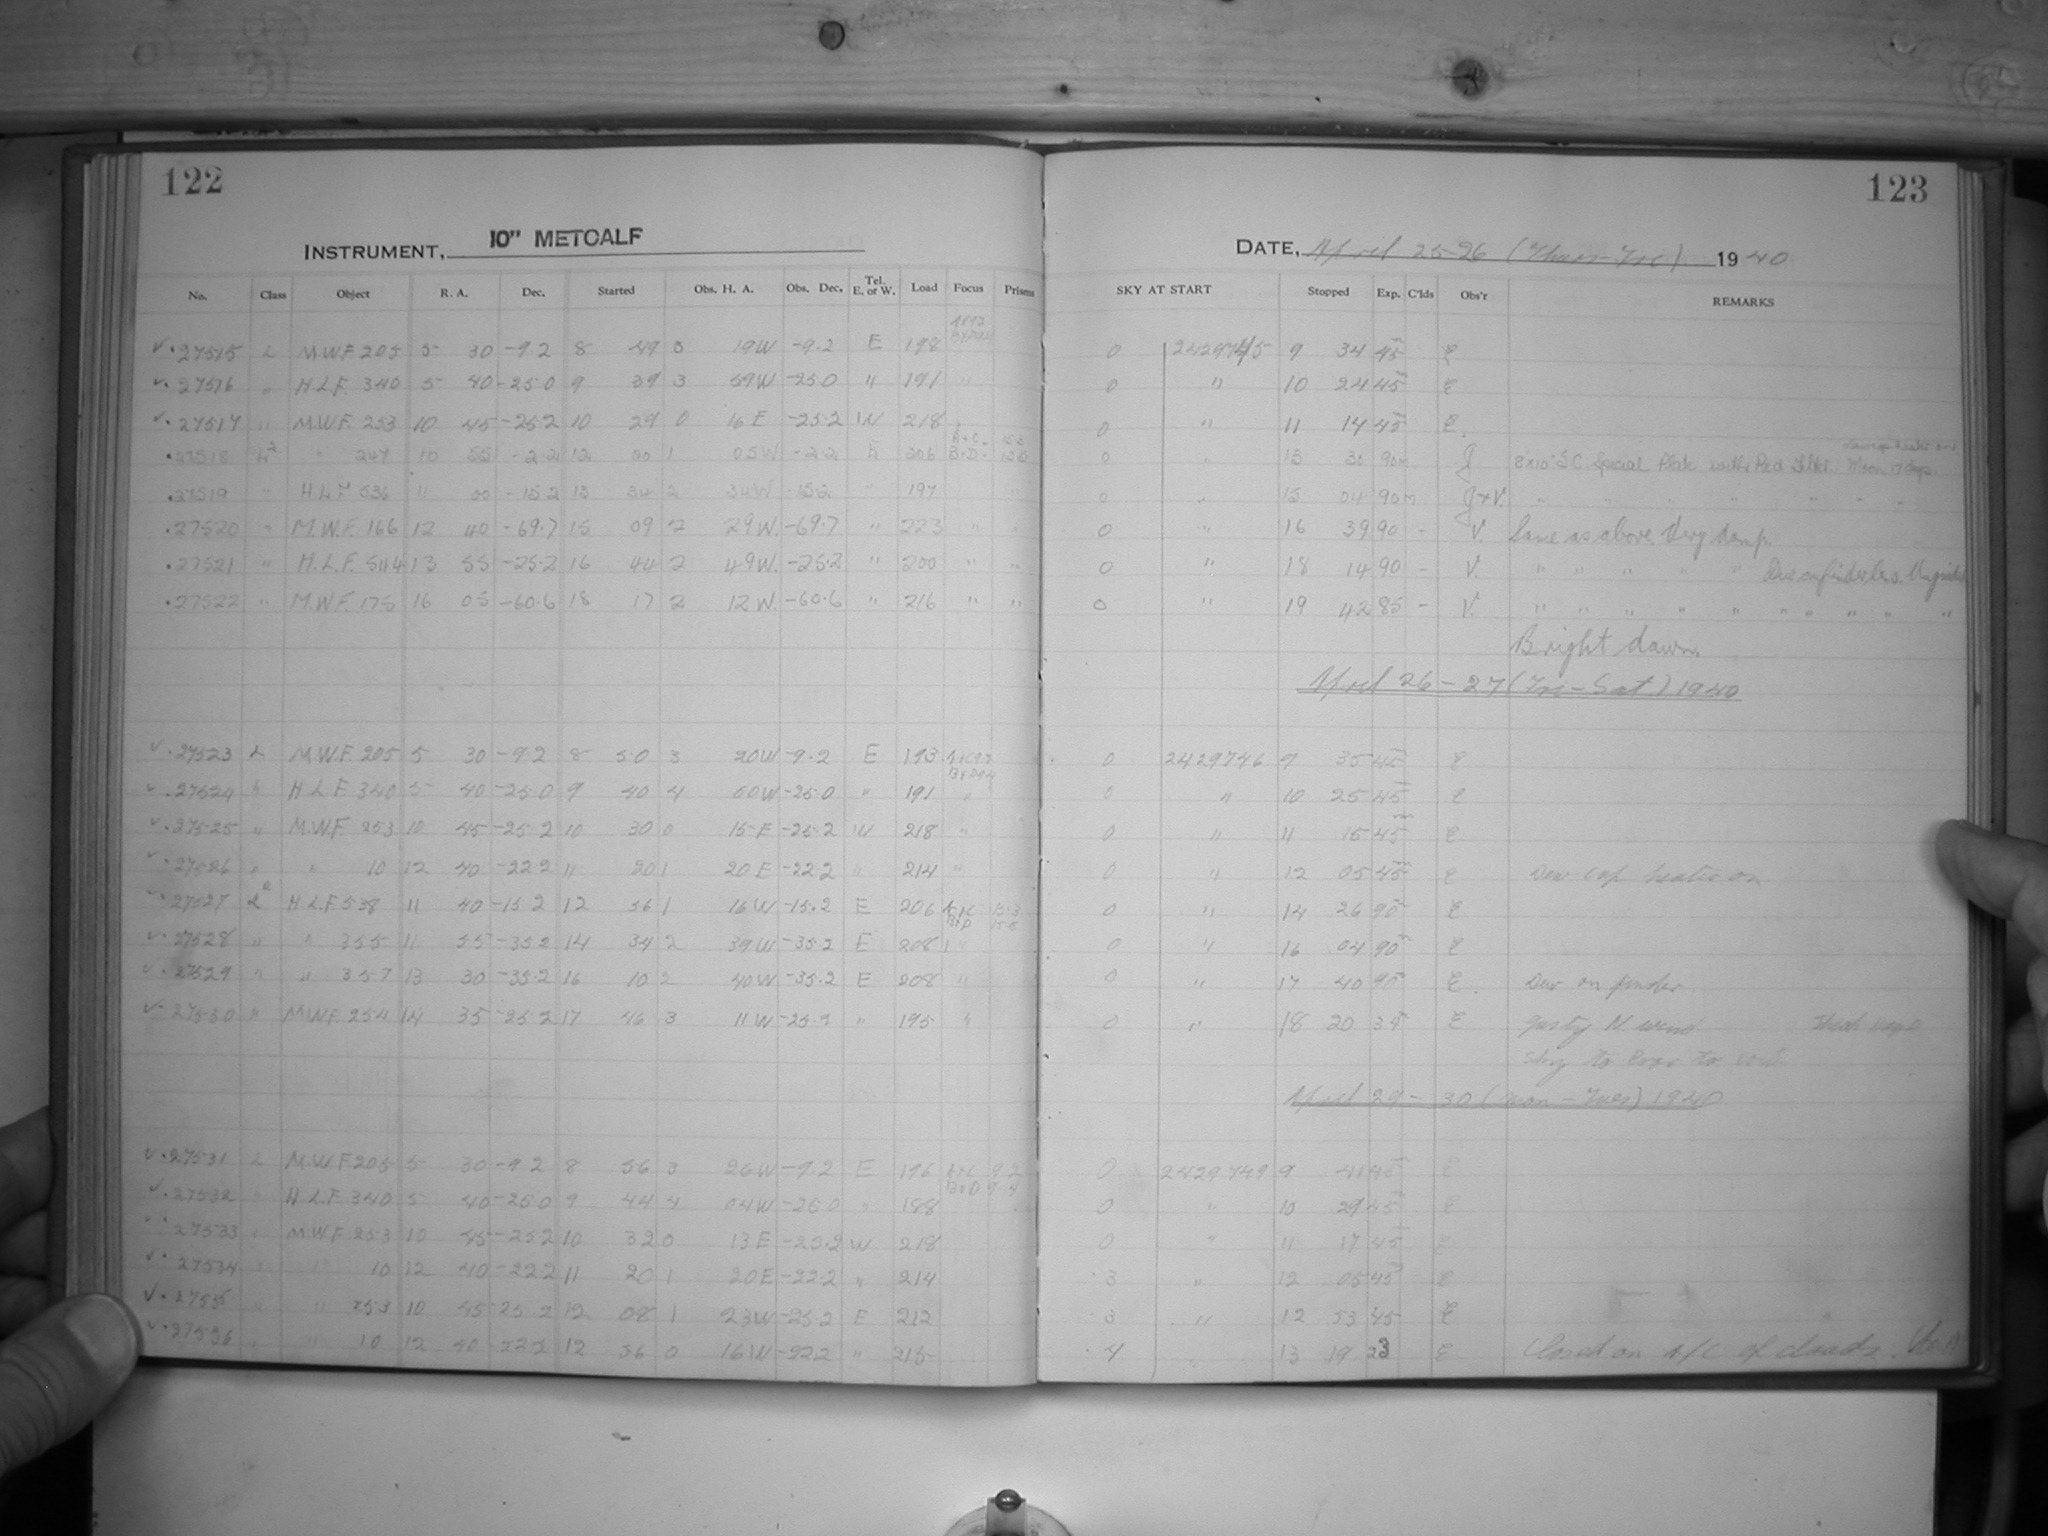 122
INSTRUMENT, 10" METCALF
No. Class Object R. A. Dec. Started Obs. H. A. Obs. Dec. Tel. E. or W. Load Focus Prisms
27515 L M.W.F. 205 5 30 -9.2 8 49 3 19W -9.2 E 198
27516 " H.L.F. 340 5 40 -25.0 9 39 3 59W -25.0 " 191 "
27517 " M.W.F. 253 10 45 -25.2 10 29 0 16 E -25.2 W 218
27518 " 247 10 55 -2.2 12 00 1 05W -2.2 E 206
27519 " H.L.F 536 11 00 -15.2 13 34 2 34W -15.2 " 197
27520 " M.W.F. 166 12 40 -69.7 15 09 2 29W. -69.7 " 223 " "
27521 " H.L.F. 544 13 55 -25.2 16 44 2 49W. -25.2 " 200 " "
27522 " M.W.F. 175 16 05 -60.6 18 17 2 12W. -60.6 " 216 " "
27523 L M.W.F. 205 5 30 -9.2 8 50 3 20W -9.2 E 193
27524 " H.L.F. 340 5 40 -25.0 9 40 4 00W -25.0 " 191 "
27525 " M.W.F. 253 10 45 -25.2 10 30 0 15 E -25.2 W 218 "
27526 " " 10 12 40 -22.2 11 20 1 20 E -22.2 " 214 "
27527 H.L.F 538 11 40 -15.2 12 56 1 16W -15.2 E 206
27528 " " 355 11 55 -35.2 14 34 2 39W -35.2 E 208 "
27529 " " 357 13 30 -35.2 16 10 2 40W -35.2 E 208 "
27530 " M.W.F. 254 14 35 -25.2 17 46 3 11W -25.2 " 195 "
27531 L M.W.F. 205 5 30 -9.2 8 56 3 26W -9.2 E 196
27532 " H.L.F 340 5 40 -25.0 9 44 4 04W -25.0 " 188
27533 " M.W.F. 253 10 45 -25.2 10 32 0 13 E -25.2 W 218
27534 " " 10 12 40 -22.2 11 20 1 20 E -22.2 " 214
27535 " " 253 10 45 -25.2 12 08 1 23W -25.2 E 212
27536 " " 10 12 40 -22.2 12 56 0 16W -22.2 " 215
123
DATE, April 25-26 (Thurs-Fri) 1940
SKY AT START Stopped Exp. C'lds Obs'r REMARKS
0 2429745 9 34 45m E
0 " 10 24 45m E
0 " 11 14 45m E.
0 " 13 30 90m J 8x10 S.C. Special Plate with Red Filter. Moon 17 days
0 " 15 04 90m J+V. " " " " " " "
0 " 16 39 90 - V. Same as above. Very damp.
0 " 18 14 90 - V. " " " " " Dew on finder lens.
0 " 19 42 85 - V. " " " " " " " " " "
Bright dawn.
April 26-27 (Fri-Sat) 1940
0 2429746 9 35 45m E
0 " 10 25 45m E
0 " 11 15 45m E
0 " 12 05 45m E Dew cap heater on
0 " 14 26 90m E
0 " 16 04 90m E
0 " 17 40 90m E. Dew on finder
0 " 18 20 34 E Gusty N wind
April 29-30 (Mon-Tues) 1940
0 2429749 9 41 45m E
0 " 10 29 45m E
0 " 11 17 45m E
3 " 12 05 45m E
3 " 12 53 45 E
4 " 13 19 23 E Closed on a/c of clouds.